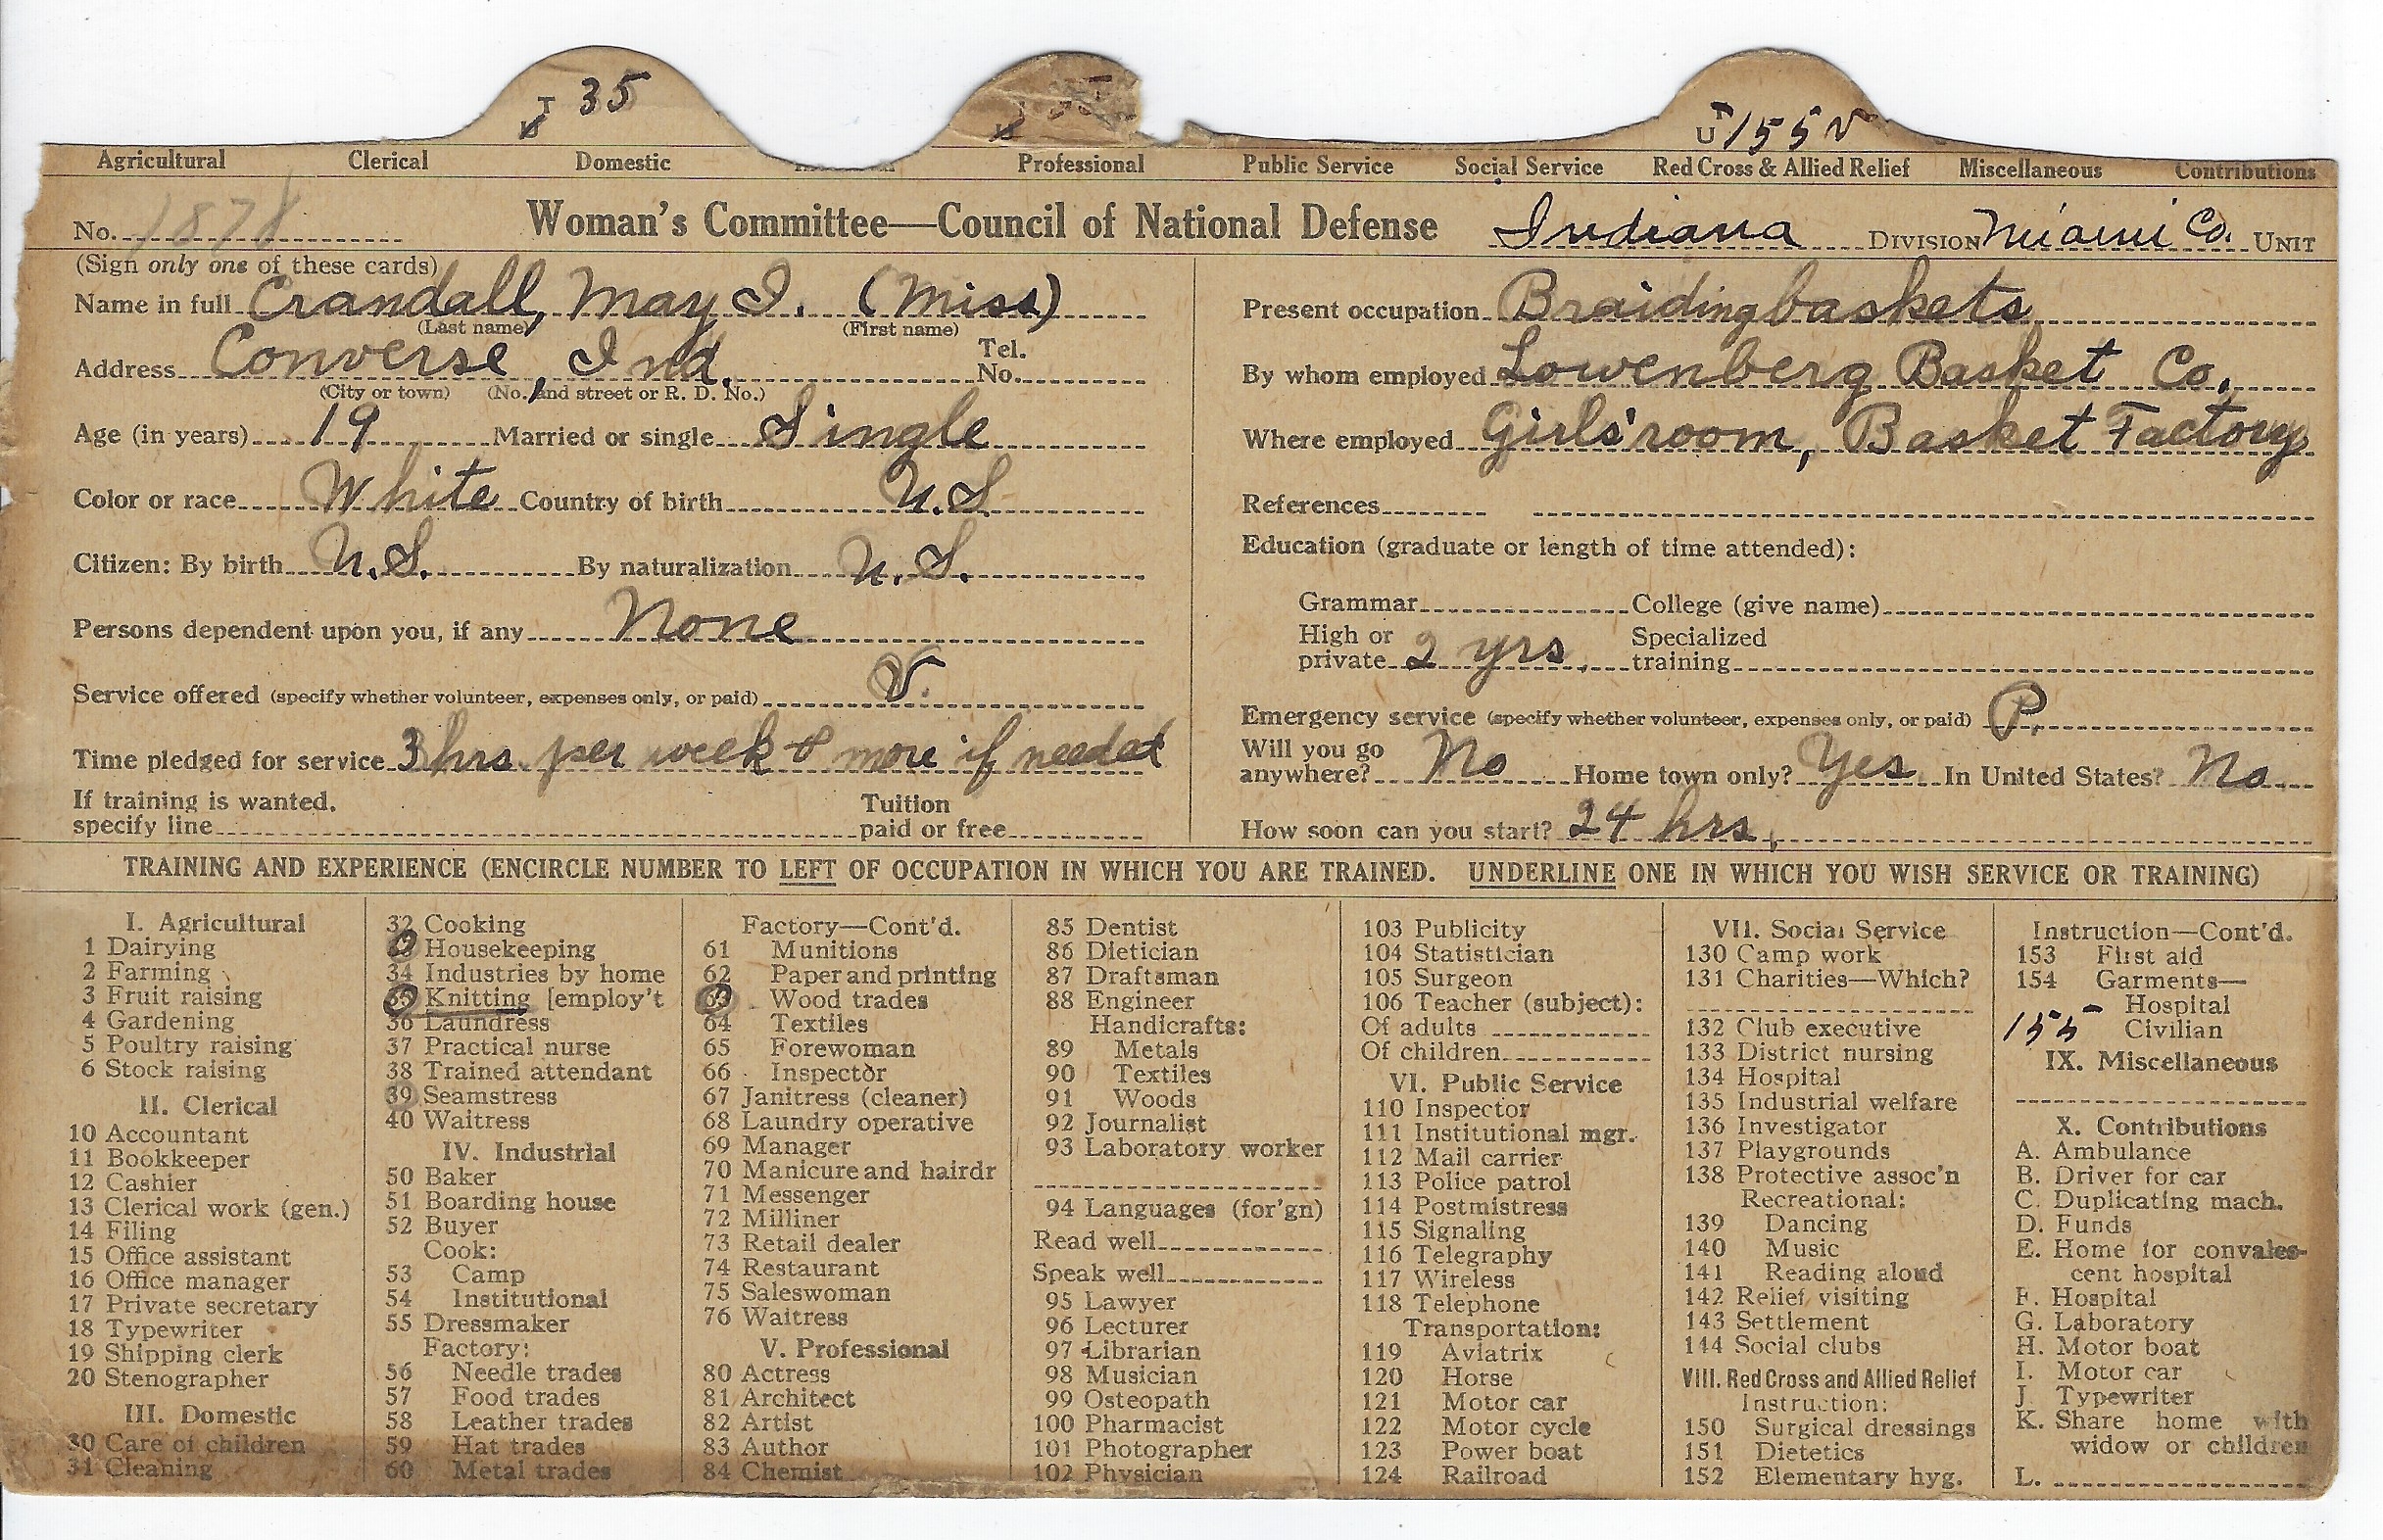 T 35
U 155 V
Agricultural Clerical Domestic Professional Public Service Social Service Red Cross & Allied Relief Miscellaneous Contributions
No. 1878 Woman's Committee—Council of National Defense Indiana DIVISION Miami Co. UNIT
(Sign only one of these cards)
Name in full Crandall, May I. (Miss)
(Last name) (First name)
Address Converse, Ind. Tel. No.
(City or town) (No. and street or R. D. No.)
Age (in years) 19 Married or single Single
Color or race White Country of birth U.S.
Citizen: By birth U.S. By naturalization U.S.
Persons dependent upon you, if any None
Service offered (specify whether volunteer, expenses only, or paid) V.
Time pledged for service 3 hrs. per week & more if needed
If training is wanted,
specify line Tuition paid or free
Present occupation Braiding baskets
By whom employed Lowenberg Basket Co.
Where employed Girls' room, Basket Factory
References
Education (graduate or length of time attended):
Grammar College (give name)
High or private 2 yrs. Specialized training
Emergency service (specify whether volunteer, expenses only, or paid) P.
Will you go anywhere? No Home town only? Yes In United States? No
How soon can you start? 24 hrs.
TRAINING AND EXPERIENCE (ENCIRCLE NUMBER TO LEFT OF OCCUPATION IN WHICH YOU ARE TRAINED. UNDERLINE ONE IN WHICH YOU WISH SERVICE OR TRAINING)
I. Agricultural
1 Dairying
2 Farming
3 Fruit raising
4 Gardening
5 Poultry raising
6 Stock raising
II. Clerical
10 Accountant
11 Bookkeeper
12 Cashier
13 Clerical work (gen.)
14 Filing
15 Office assistant
16 Office manager
17 Private secretary
18 Typewriter
19 Shipping clerk
20 Stenographer
III. Domestic
30 Care of children
31 Cleaning
32 Cooking
33 Housekeeping
34 Industries by home
35 Knitting [employ't
36 Laundress
37 Practical nurse
38 Trained attendant
39 Seamstress
40 Waitress
IV. Industrial
50 Baker
51 Boarding house
52 Buyer
Cook:
53 Camp
54 Institutional
55 Dressmaker
Factory:
56 Needle trades
57 Food trades
58 Leather trades
59 Hat trades
60 Metal trades
Factory—Cont'd.
61 Munitions
62 Paper and printing
63 Wood trades
64 Textiles
65 Forewoman
66 Inspector
67 Janitress (cleaner)
68 Laundry operative
69 Manager
70 Manicure and hairdr
71 Messenger
72 Milliner
73 Retail dealer
74 Restaurant
75 Saleswoman
76 Waitress
V. Professional
80 Actress
81 Architect
82 Artist
83 Author
84 Chemist
85 Dentist
86 Dietician
87 Draftsman
88 Engineer
Handicrafts:
89 Metals
90 Textiles
91 Woods
92 Journalist
93 Laboratory worker
94 Languages (for'gn)
Read well
Speak well
95 Lawyer
96 Lecturer
97 Librarian
98 Musician
99 Osteopath
100 Pharmacist
101 Photographer
102 Physician
103 Publicity
104 Statistician
105 Surgeon
106 Teacher (subject):
Of adults
Of children
VI. Public Service
110 Inspector
111 Institutional mgr.
112 Mail carrier
113 Police patrol
114 Postmistress
115 Signaling
116 Telegraphy
117 Wireless
118 Telephone
Transportation:
119 Aviatrix
120 Horse
121 Motor car
122 Motor cycle
123 Power boat
124 Railroad
VII. Social Service
130 Camp work
131 Charities—Which?
132 Club executive
133 District nursing
134 Hospital
135 Industrial welfare
136 Investigator
137 Playgrounds
138 Protective assoc'n
Recreational:
139 Dancing
140 Music
141 Reading aloud
142 Relief visiting
143 Settlement
144 Social clubs
VIII. Red Cross and Allied Relief
Instruction:
150 Surgical dressings
151 Dietetics
152 Elementary hyg.
Instruction—Cont'd.
153 First aid
154 Garments—
Hospital
155 Civilian
IX. Miscellaneous
X. Contributions
A. Ambulance
B. Driver for car
C. Duplicating mach.
D. Funds
E. Home for convales-
cent hospital
F. Hospital
G. Laboratory
H. Motor boat
I. Motor car
J. Typewriter
K. Share home with
widow or children
L.